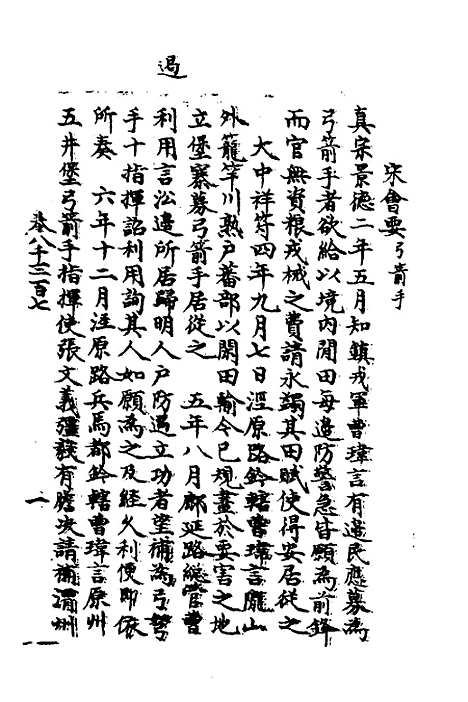 過
宋會要 弓箭手
真宗景德二年五月知鎮戎軍曹瑋言有邊民應募為
弓箭手者欲給以境內閒田每邊防警急皆願為前鋒
而官無資糧戎械之費請永蠲其田賦使得安居從之
大中祥符四年九月七日涇原路鈐轄曹瑋言隴山
外籠竿川熟戶蕃部以閑田輸令已規畫於要害之地
立堡寨募弓箭手居從之 五年八月鄜延路總管曹
利用言沿邊所居歸明人戶防遏立功者望補為弓弩
手十指揮詔利用詢其人如願為之及經久利便即依
所奏 六年十二月涇原路兵馬都鈐轄曹瑋言原州
五井堡弓箭手指揮使張文義彊毅有膽決請補渭州
卷八千三百七
一